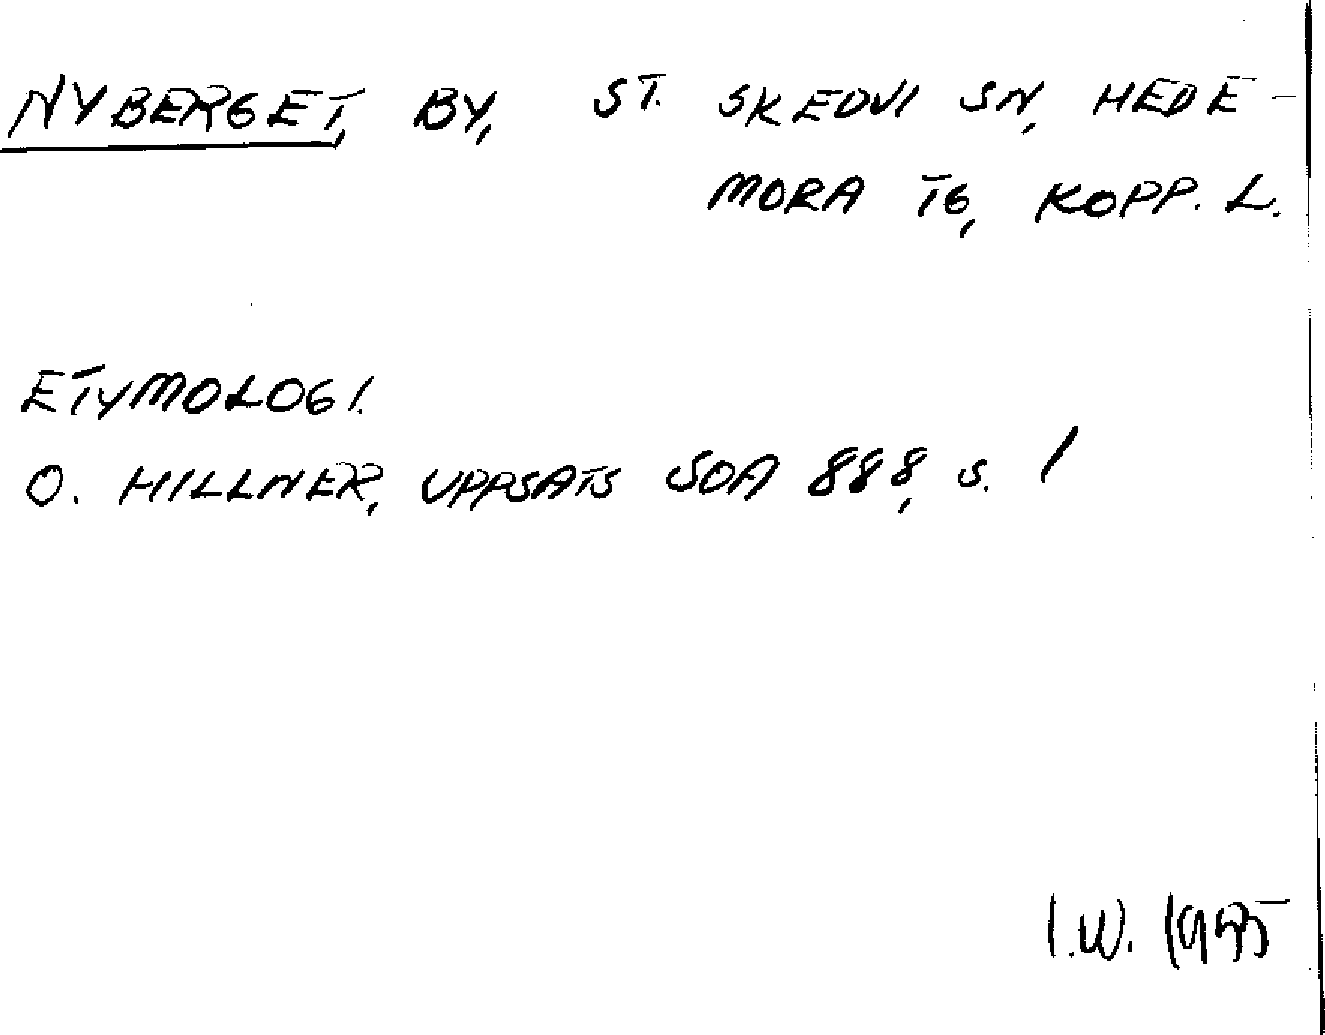 NYBERGET, BY, ST. SKEDVI SN, HEDE-
MORA TG, KOPP. L.
ETYMOLOGI.
O. HILLNER, UPPSATS SOA 888, s. 1
I.W.